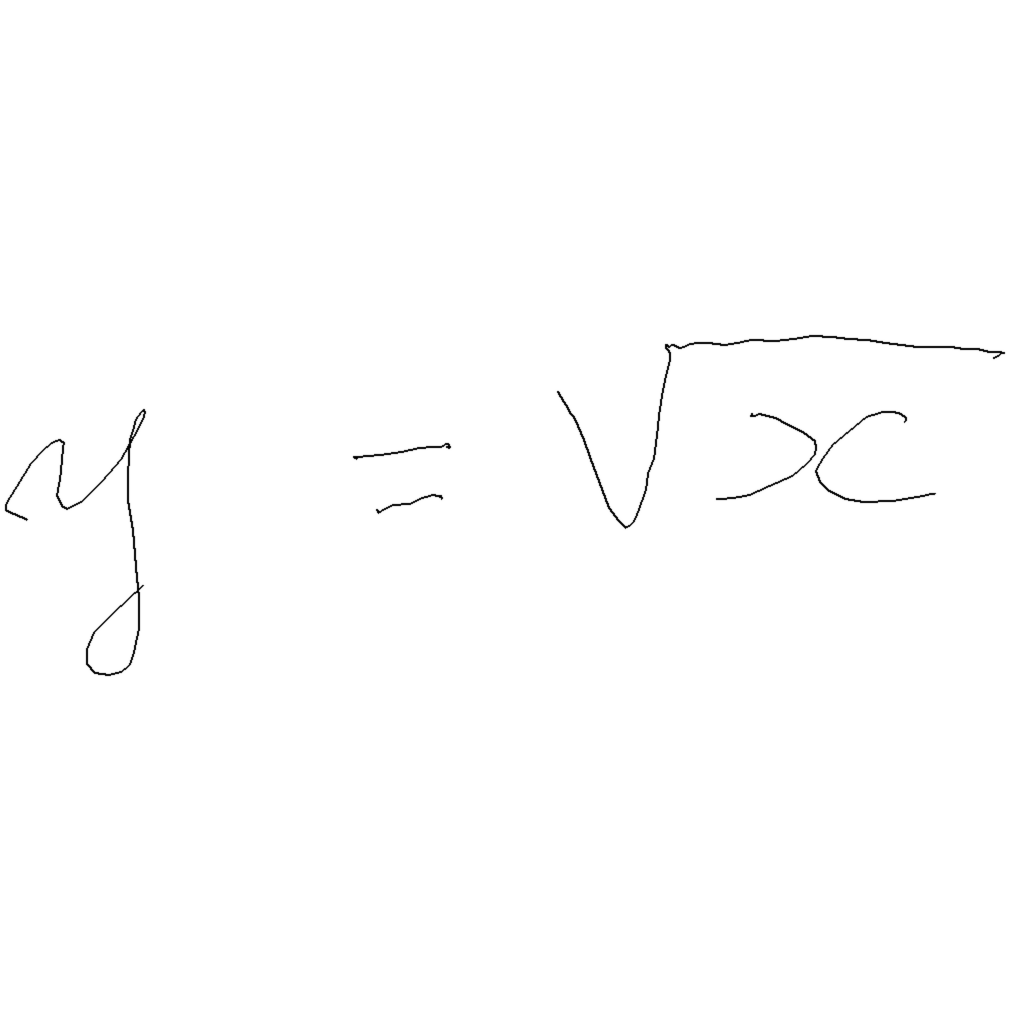 y = √x